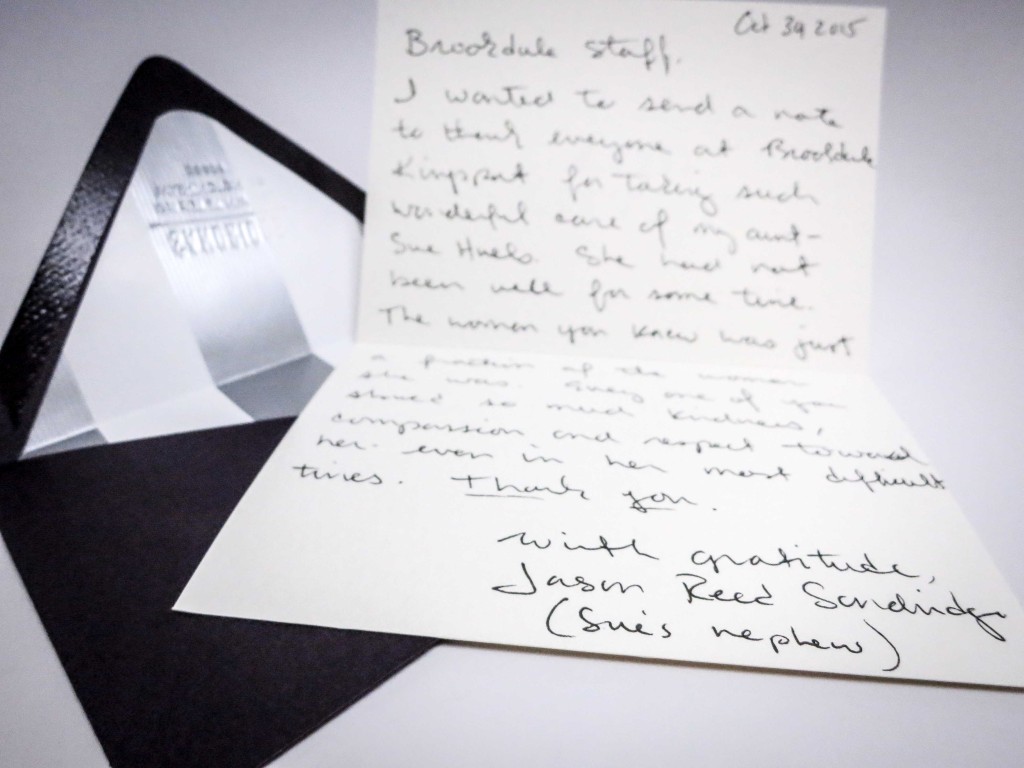 Oct 30, 2015
Brookdale Staff.
I wanted to send a note
to thank everyone at Brookdale
Kingsport for taking such
wonderful care of my aunt-
Sue Huels. She had not
been well for some time.
The woman you knew was just
a fraction of the woman
she was. Every one of you
showed so much kindness,
compassion and respect toward
her. even in her most difficult
times. Thank you.
with gratitude,
Jason Reed Sandidge
(Sue's nephew)